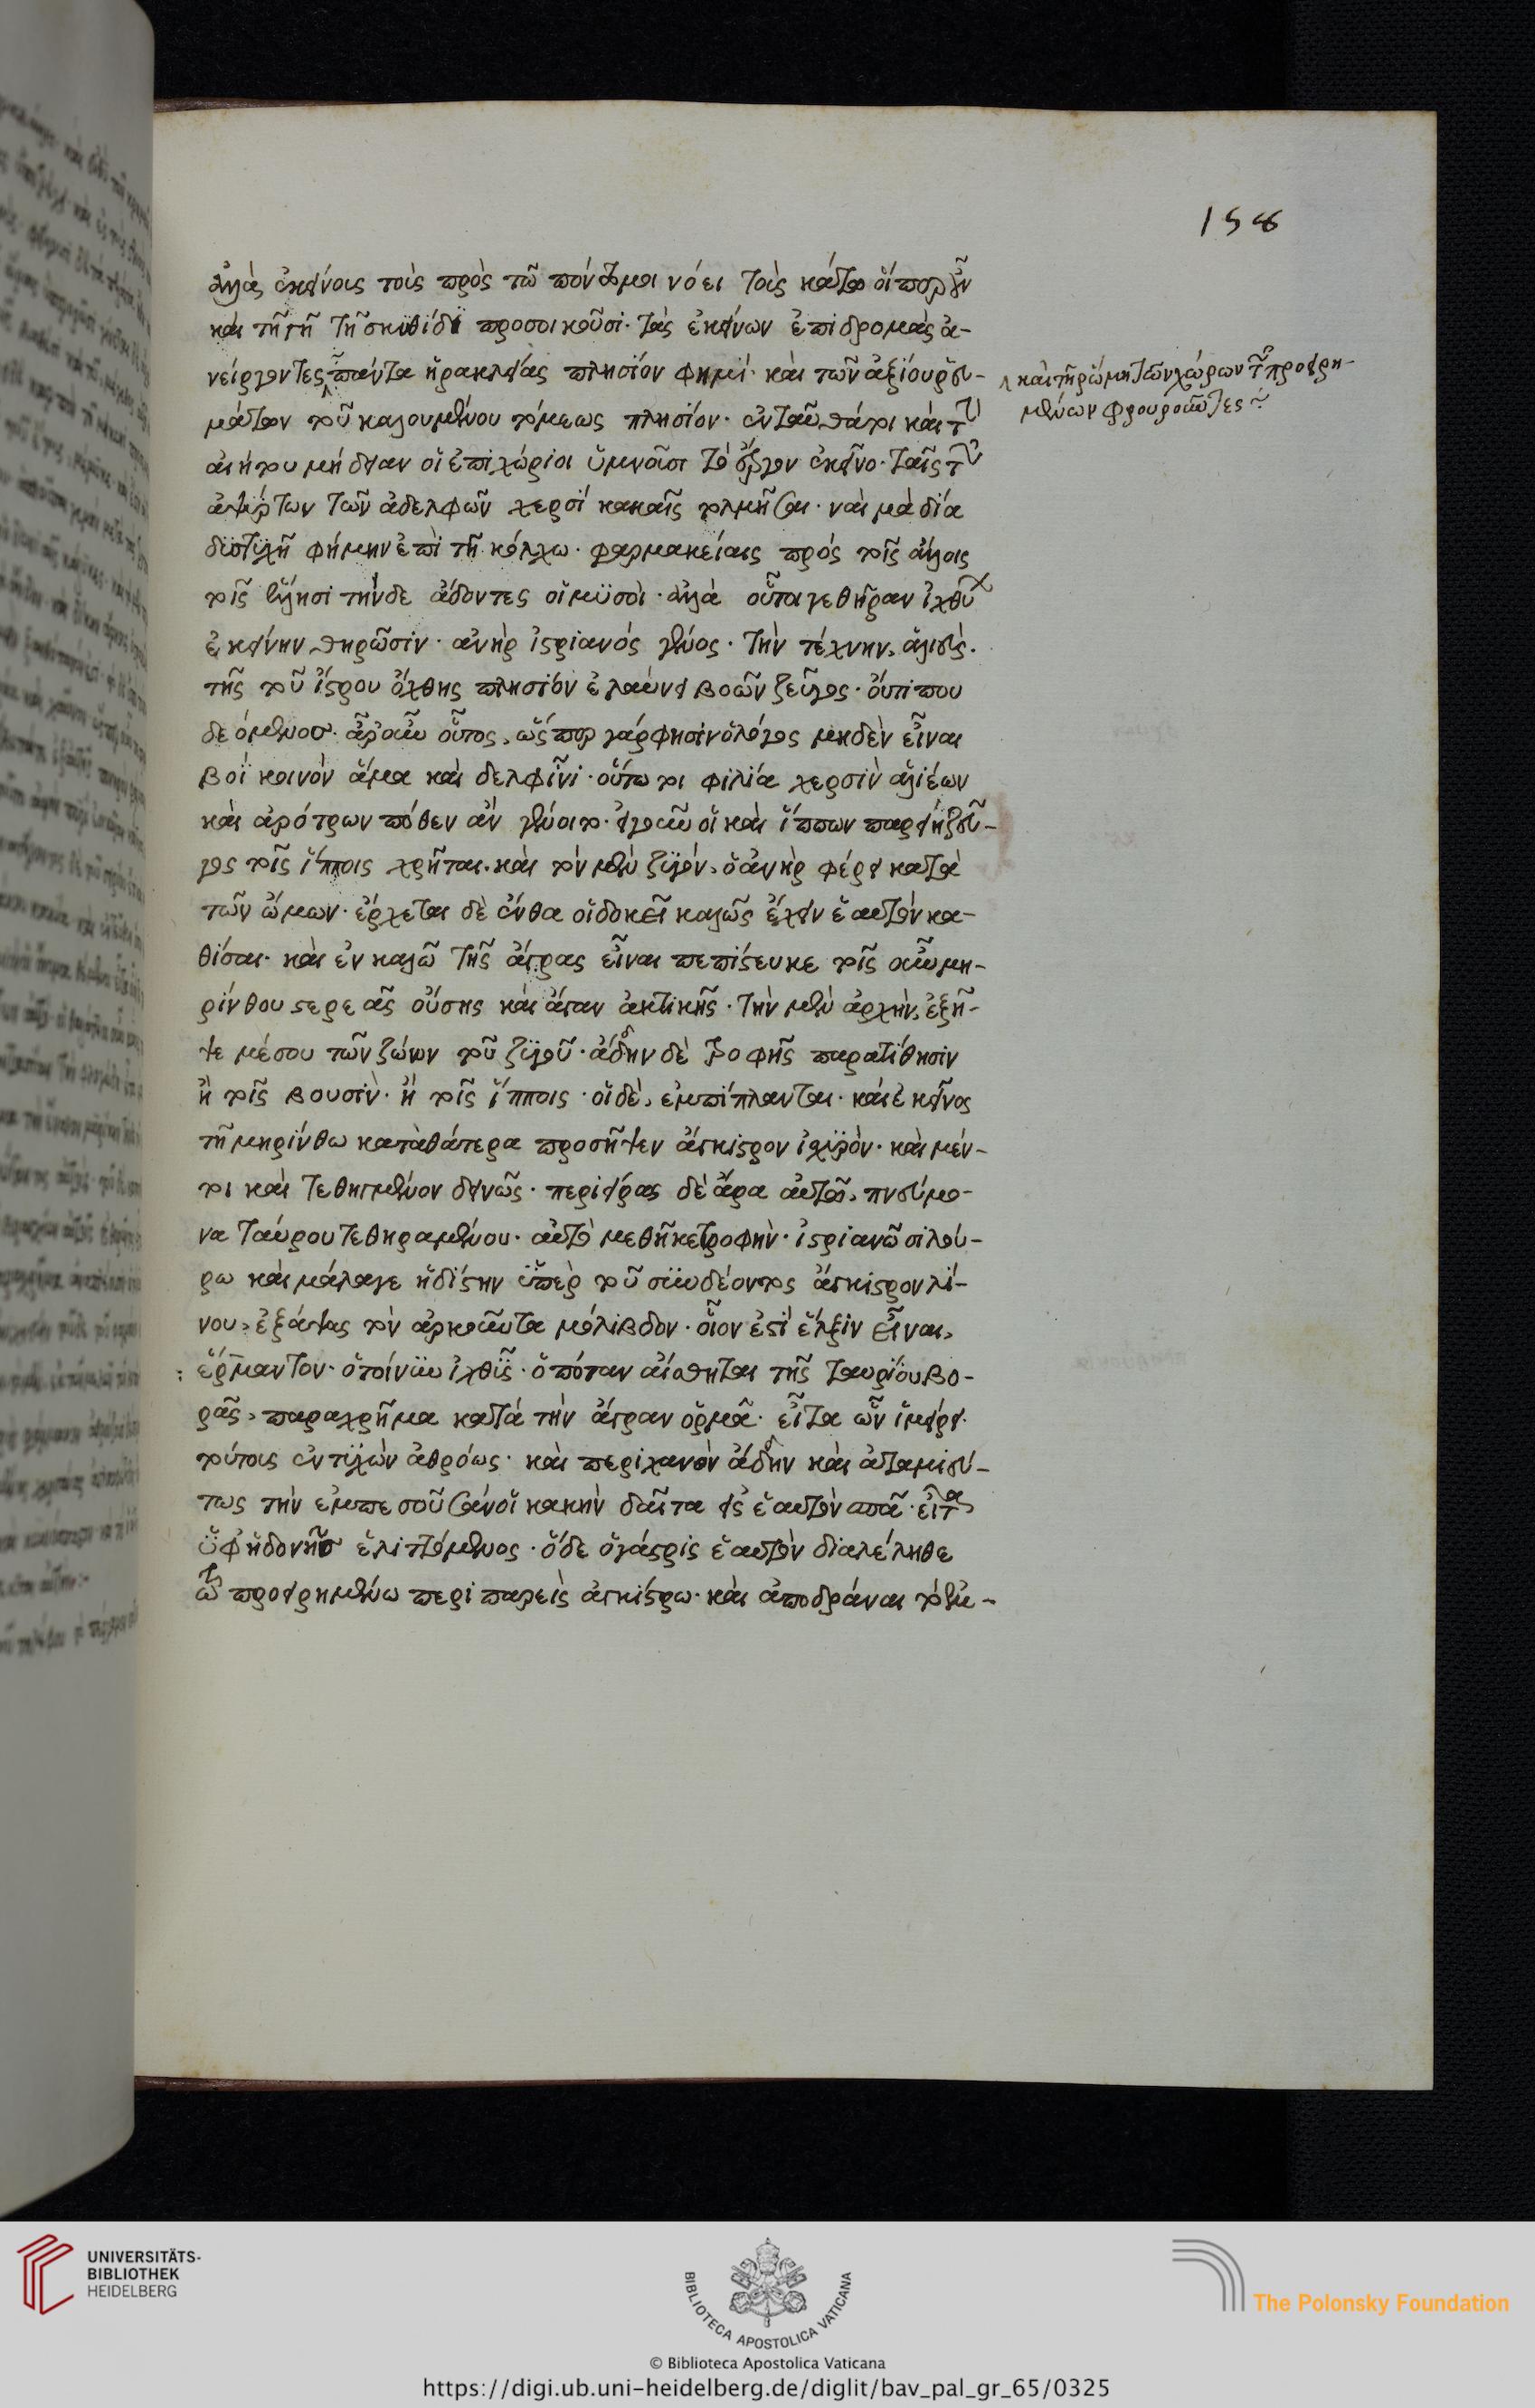 158
ἀλλὰ ἐκείνοις τοῖς πρὸς τῶ πόντω μοι νόει τοῖς κάτω οἵπερ οὖν
καὶ τῆ γῆ τῆ σκυθίδι προσοικοῦσι. τὰς ἐκείνων ἐπιδρομὰς ἀ-
νείργοντες πάντα ἡρακλείας πλησίον φημί. καὶ τῶν ἀξίου ῥευ-
μάτων τοῦ καλουμένου τόμεως πλησίον. ἐνταῦθά τοι καὶ τὴν
αἰήτου μήδειαν οἱ ἐπιχώριοι ὑμνοῦσι τὸ ἔργον ἐκεῖνο. ταῖς τῶν
ἀψύρτων τῶν ἀδελφῶν χερσὶ κακαῖς τολμῆσαι. ναὶ μὰ δία
δυστυχῆ φήμην ἐπὶ τῆ κόλχω. φαρμακείαις πρὸς τοῖς ἄλλοις
τοῖς τήνδε ἄδοντες οἱ μυσοί. ἀλλὰ οὗτοί γε θήραν ἰχθύων
ἐκείνην θηρῶσιν. ἀνὴρ ἰστριανὸς γένος. τὴν τέχνην, ἁλιεύς.
τῆς τοῦ ἴστρου ὄχθης πλησίον ἐλαύνει βοῶν ζεῦγος. οὔτι που
δεόμενος ἀροῦν οὗτος, ὥσπερ γάρ φησιν ὁ λόγος μηδὲν εἶναι
βοῒ κοινὸν ἅμα καὶ δελφῖνι. οὕτω τοι φιλία χερσὶν ἁλιέων
καὶ ἀρότρων πόθεν ἂν γένοιτο. εἰ γοῦν οἱ καὶ ἵππων παρείη ζεῦ-
γος τοῖς ἵπποις χρῆται. καὶ τὸν μὲν ζυγόν, ὁ ἀνὴρ φέρει κατὰ
τῶν ὤμων. ἔρχεται δὲ ἔνθα οἱ δοκεῖ καλῶς ἔχειν ἑαυτὸν κα-
θίσαι. καὶ ἐν καλῶ τῆς ἄγρας εἶναι πεπίστευκε τοῖς οὖν μη-
ρίνθου στερεᾶς οὔσης καὶ ἄγαν ἑκτικῆς. τὴν μὲν ἀρχὴν, ἐξῆ-
ψε μέσου τῶν ζώων τοῦ ζυγοῦ. ἄδην δὲ τροφῆς παρατίθησιν
ἢ τοῖς βουσίν. ἢ τοῖς ἵπποις. οἱ δὲ, ἐμπίπλανται. καὶ ἐκεῖνος
τῆ μηρίνθω κατὰ θάτερα προσῆψεν ἄγκιστρον ἰσχυρόν. καὶ μέν-
τοι καὶ τεθηγμένον δεινῶς. περιείρας δὲ ἄρα αὐτῶ, πνεύμο-
να ταύρου τεθηραμένου. αὐτὸ μεθῆκε τροφὴν. ἰστριανῶ σιλού-
ρω καὶ μάλα γε ἡδίστην ὑπὲρ τοῦ συνδέοντος ἄγκιστρον λί-
νου, ἐξάψας τὸν ἀρκοῦντα μόλιβδον. οἷον ἐστὶ ἕλξιν εἶναι,
ἕρμαντον. ὁ τοίνυν ἰχθῦς. ὁπόταν αἴσθηται τῆς ταυρίου βο-
ρᾶς, παραχρῆμα κατὰ τὴν ἄγραν ὁρμᾶ. εἶτα ὧν ἱμείρει.
τούτοις ἐντυχὼν ἀθρόως. καὶ περιχανὼν ἄδην καὶ ἀταμιεύ-
τως τὴν ἐμπεσοῦσάν οἱ κακὴν δαῖτα εἰς ἑαυτὸν σπᾶ. εἶτα
ὑφ ἡδονῆς ἑλιττόμενος. ὅδε ὁ γάστρις ἑαυτὸν διαλέληθε
τῶ προειρημένω περιπαρεὶς ἀγκίστρω. καὶ ἀποδρᾶναι
καὶ τῆ ῥώμη τῶν χώρων τῶν προειρη-
μένων φρουροῦντες
UNIVERSITÄTS-
BIBLIOTHEK
HEIDELBERG
BIBLIOTECA APOSTOLICA VATICANA
The Polonsky Foundation
© Biblioteca Apostolica Vaticana
https://digi.ub.uni-heidelberg.de/diglit/bav_pal_gr_65/0325